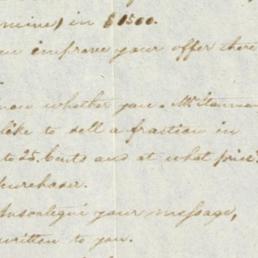 mine) in $1500.
improve your offer there
now whether you. Mr
like to sell a fraction in
to 25. Cents and at what price.
purchaser.
your message,
written to you.